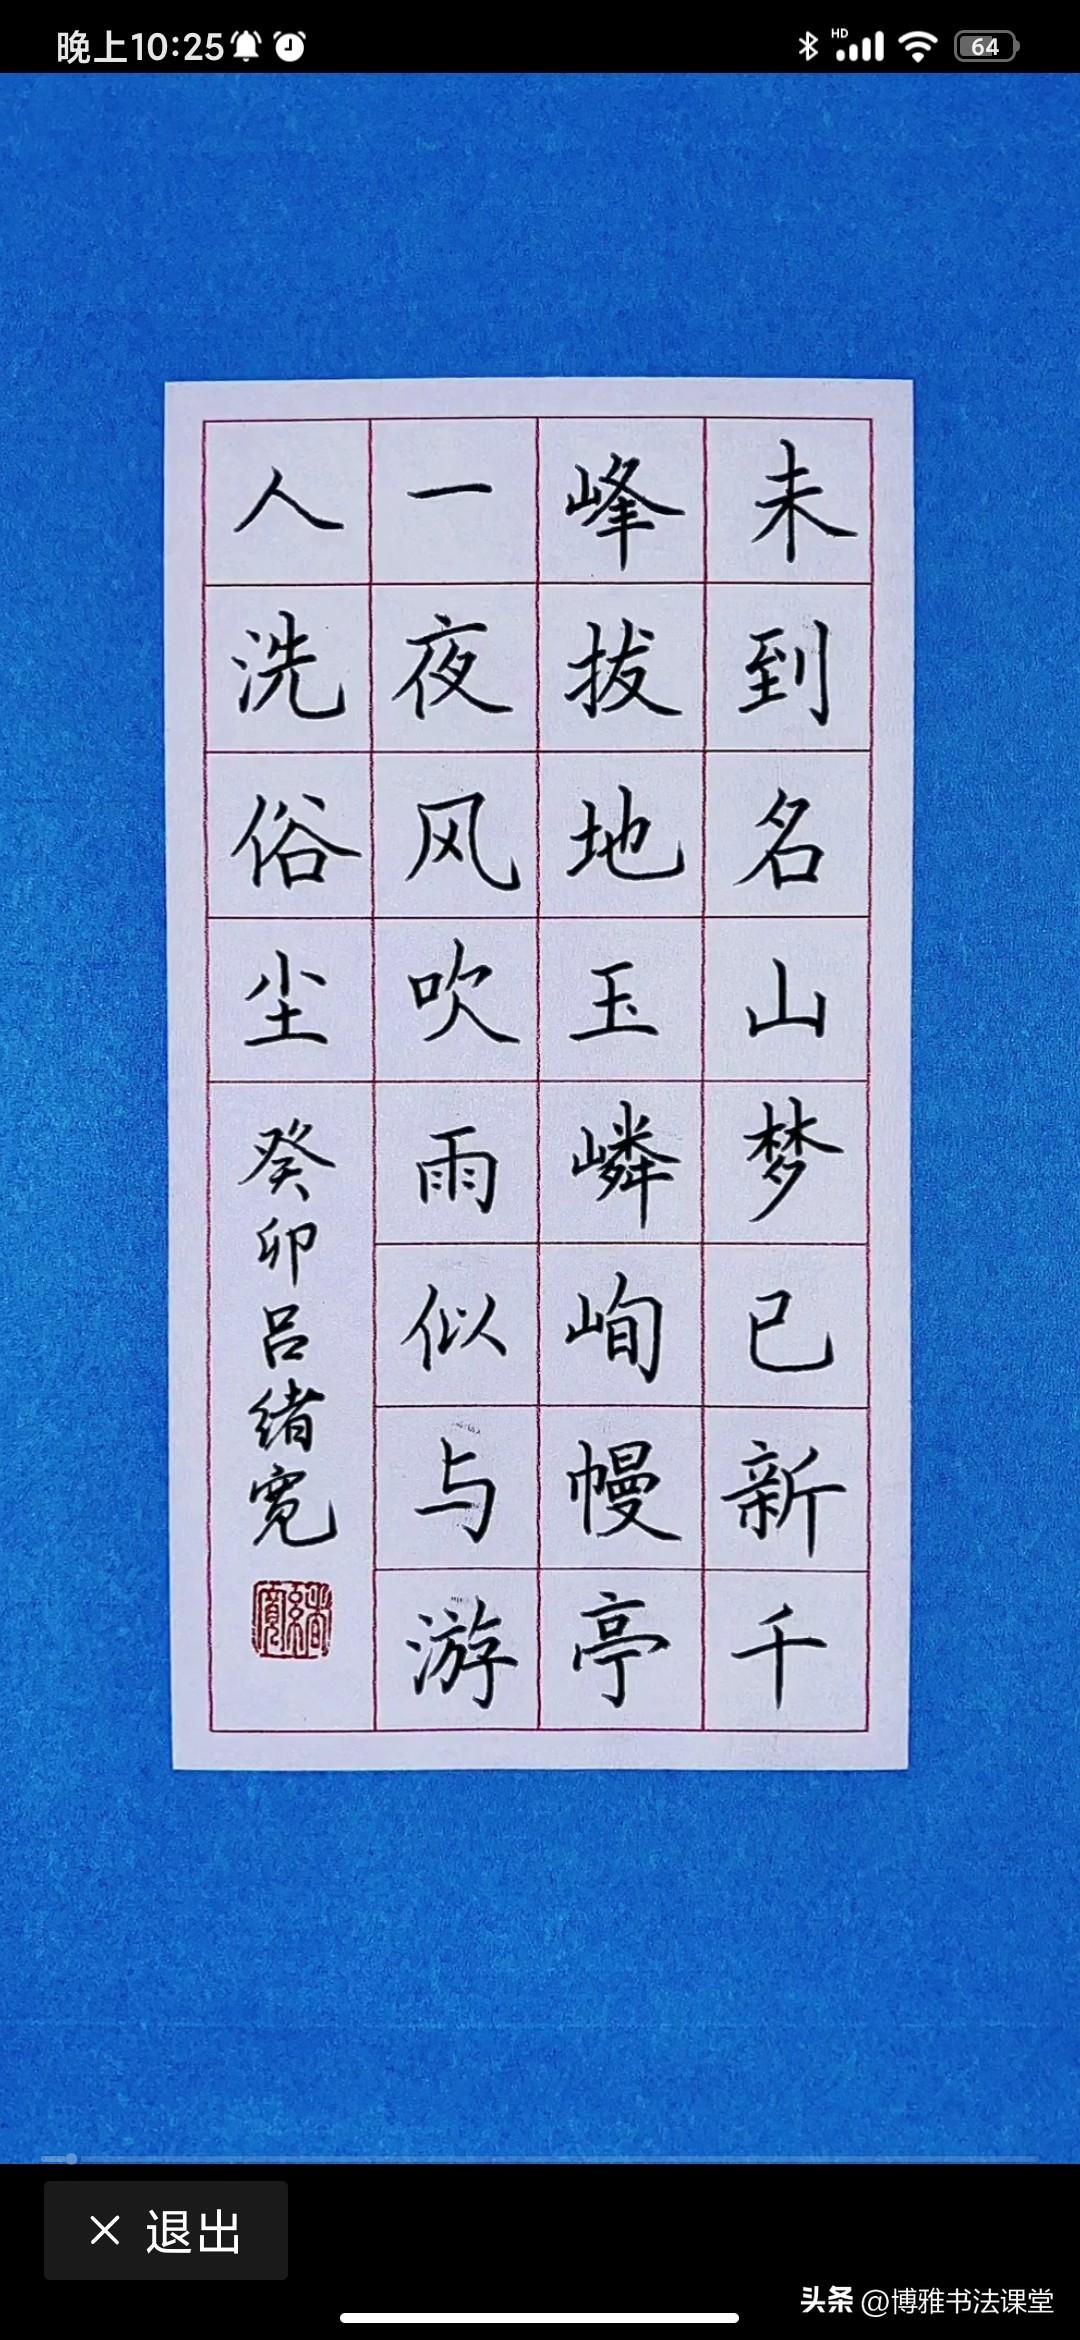 晚上10:25
HD
64
未到名山梦已新千
峰拔地玉嶙峋幔亭
一夜风吹雨似与游
人洗俗尘
癸卯吕绪宽
绪宽
退出
头条 @博雅书法课堂